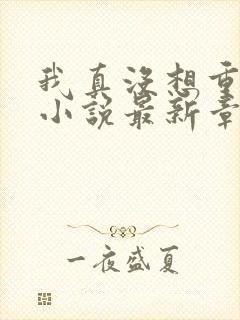 我真没想重
小说最新章
一夜盛夏